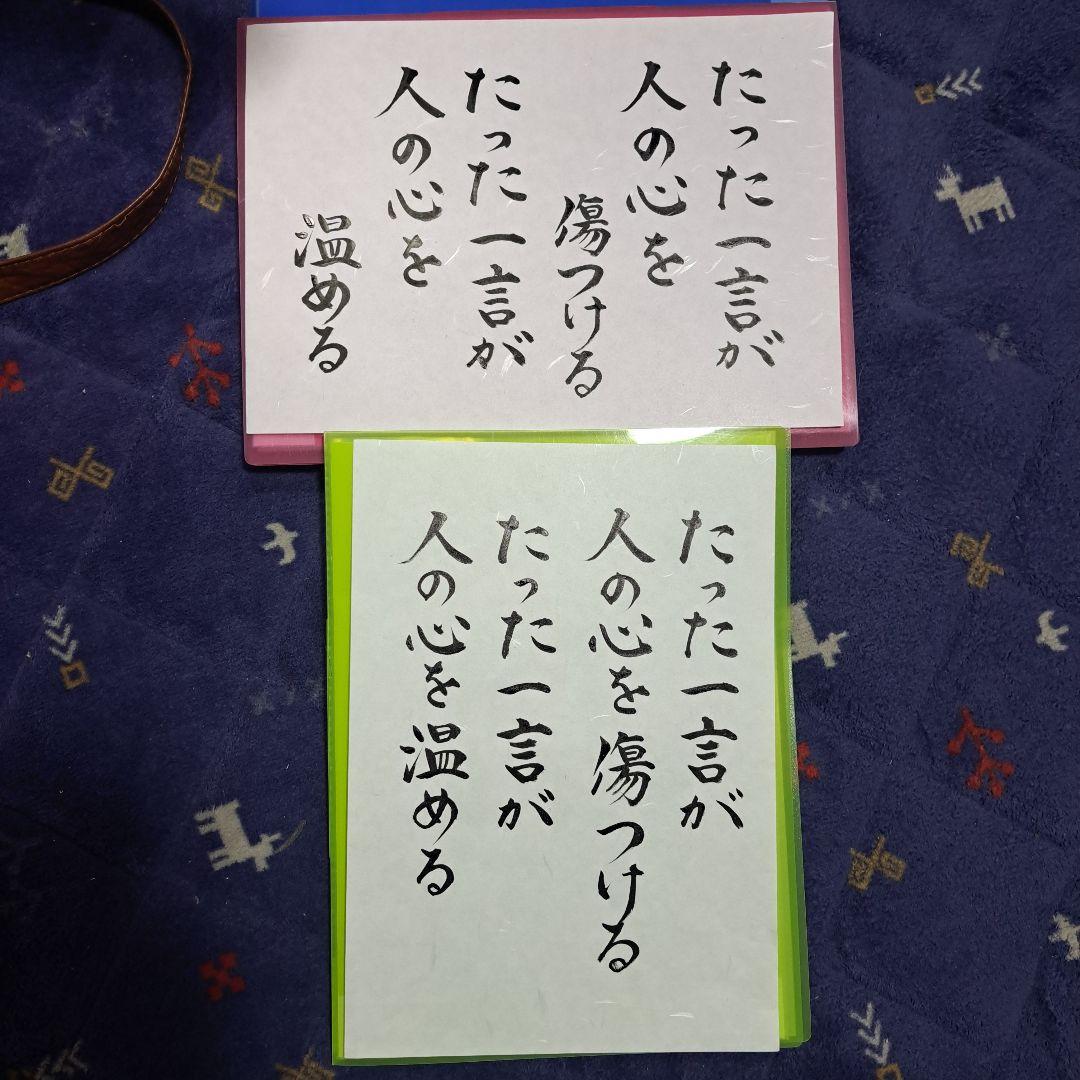 たった一言が
人の心を
傷つける
たった一言が
人の心を
温める
たった一言が
人の心を傷つける
たった一言が
人の心を温める